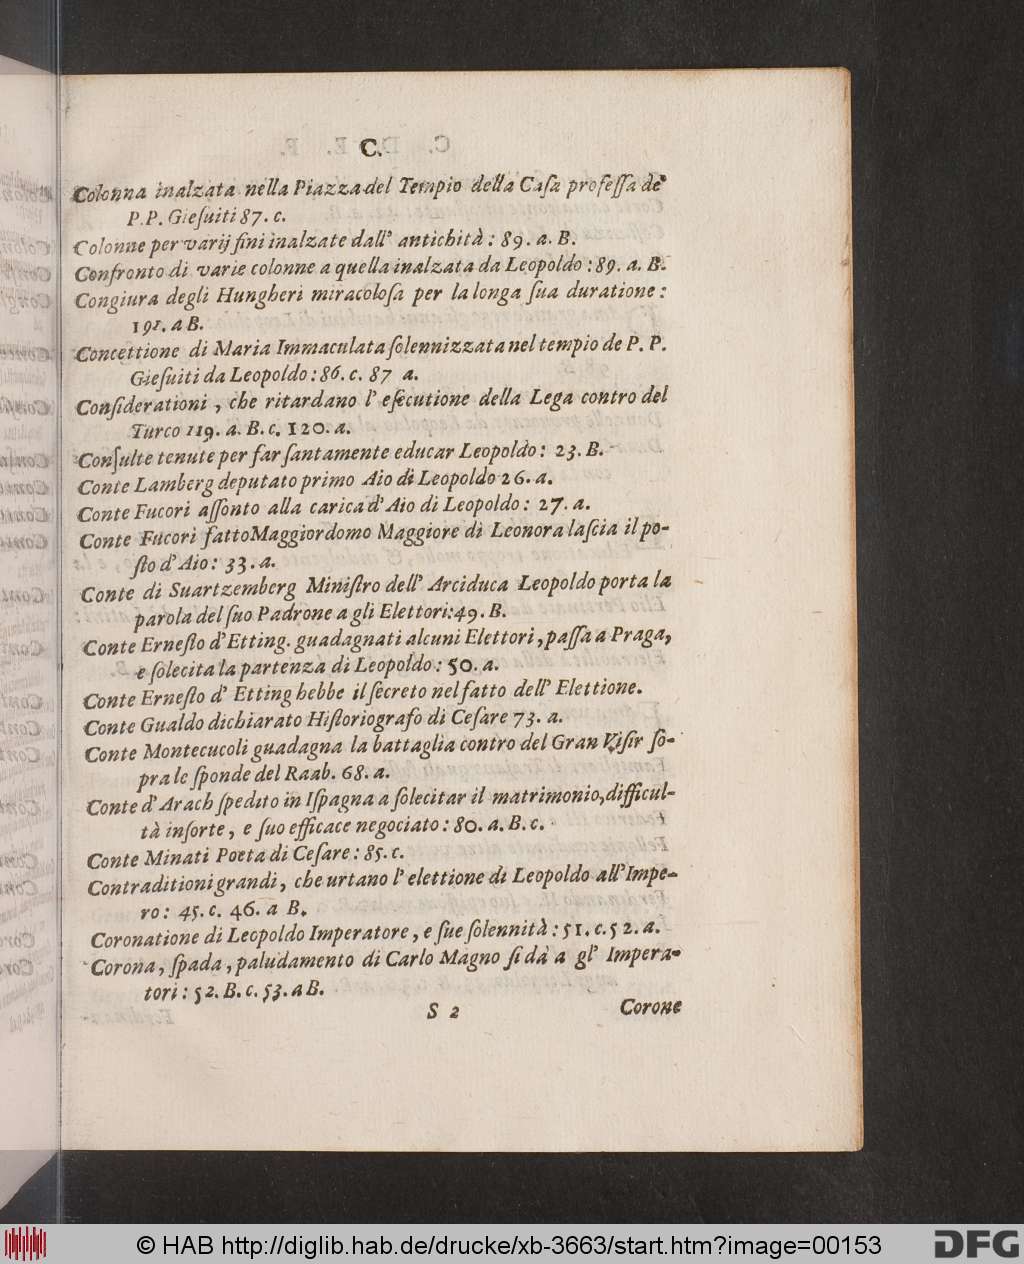 C.
Colonna inalzata nella Piazza del Tempio della Casa professa de'
P.P. Giesuiti 87. c.
Colonne per varij fini inalzate dall' antichità: 89. a. B.
Confronto di varie colonne a quella inalzata da Leopoldo: 89. a. B.
Congiura degli Hungheri miracolosa per la longa sua duratione:
191. a B.
Concettione di Maria Immaculata solennizzata nel tempio de P. P.
Giesuiti da Leopoldo: 86. c. 87 a.
Considerationi, che ritardano l' esecutione della Lega contro del
Turco 119. a. B. c. 120. a.
Consulte tenute per far santamente educar Leopoldo: 23. B.
Conte Lamberg deputato primo Aio di Leopoldo 26. a.
Conte Fucori assonto alla carica d' Aio di Leopoldo: 27. a.
Conte Fucori fatto Maggiordomo Maggiore di Leonora lascia il po-
sto d' Aio: 33. a.
Conte di Suartzemberg Ministro dell' Arciduca Leopoldo porta la
parola del suo Padrone a gli Elettori: 49. B.
Conte Ernesto d' Etting. guadagnati alcuni Elettori, passa a Praga,
e solecita la partenza di Leopoldo: 50. a.
Conte Ernesto d' Etting hebbe il secreto nel fatto dell' Elettione.
Conte Gualdo dichiarato Historiografo di Cesare 73. a.
Conte Montecucoli guadagna la battaglia contro del Gran Visir so-
pra le sponde del Raab. 68. a.
Conte d' Arach spedito in Ispagna a solecitar il matrimonio, difficul-
tà insorte, e suo efficace negociato: 80. a. B. c.
Conte Minati Poeta di Cesare: 85. c.
Contraditioni grandi, che urtano l' elettione di Leopoldo all' Impe-
ro: 45. c. 46. a B.
Coronatione di Leopoldo Imperatore, e sue solennità: 51. c. 52. a.
Corona, spada, paludamento di Carlo Magno si dà a gl' Impera-
tori: 52. B. c. 53. a B.
S 2 Corone
© HAB http://diglib.hab.de/drucke/xb-3663/start.htm?image=00153
DFG